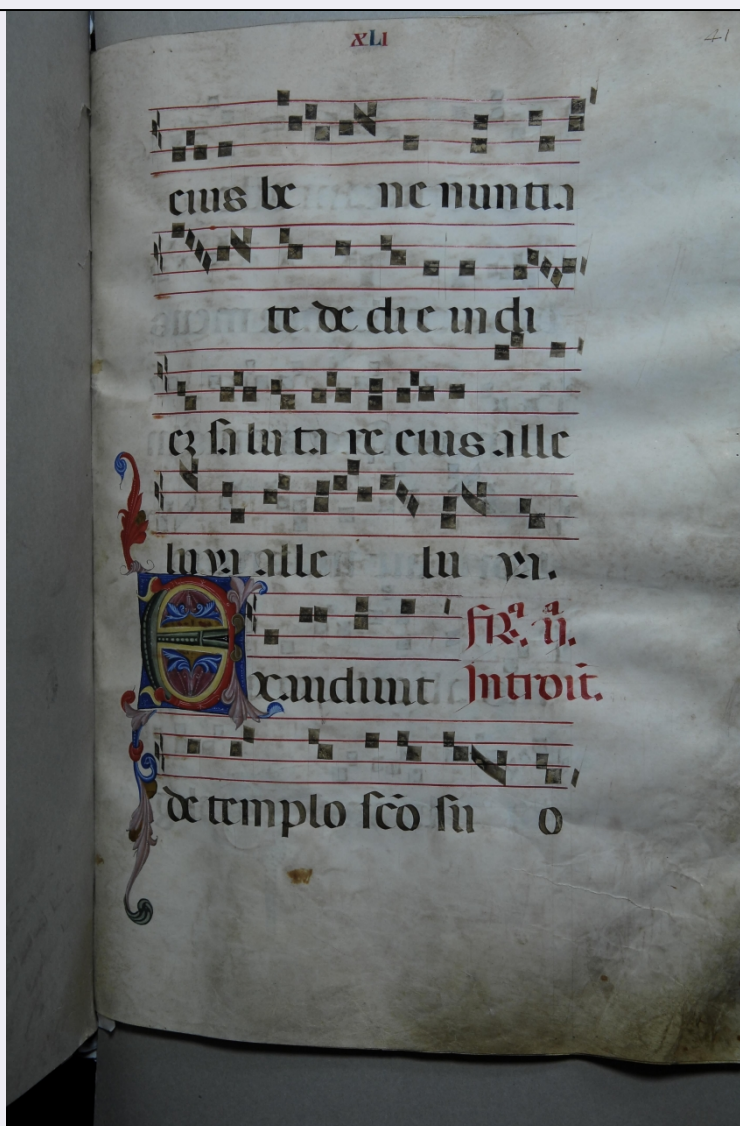 XLI
41
eius be ne nuntia
te de die in di
eȝ sa lu ta re eius alle
lu ya alle lu ya.
Exaudiunt
fır̃. ĩj.
Introit̃.
de templo sc̄o su o